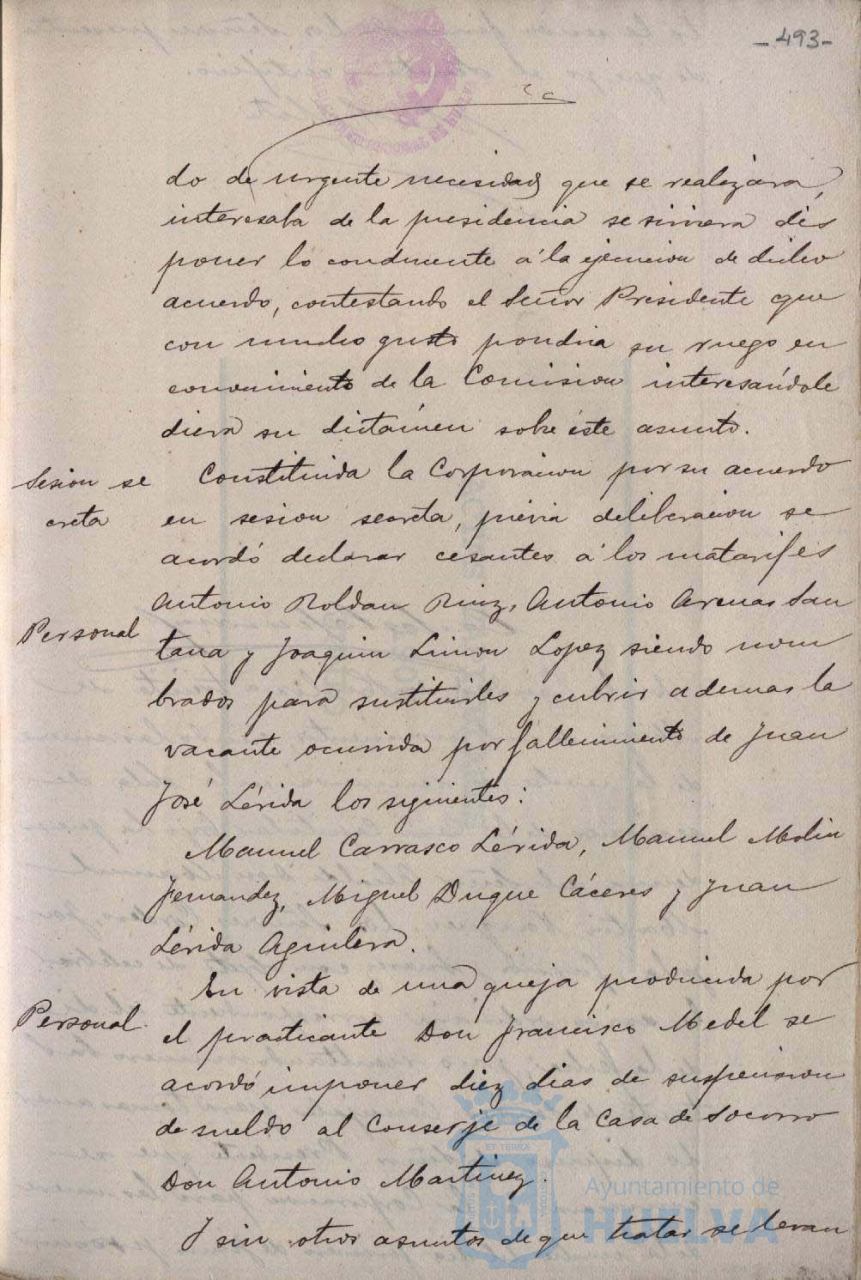 -493-
do de urgente necesidad que se realizara,
interesaba de la presidencia se sirviera dis
poner lo conducente á la ejecucion de dicho
acuerdo, contestando el Señor Presidente que
con mucho gusto pondria su ruego en
conocimiento de la Comision interesándole
diera su dictámen sobre éste asunto.
Sesion se
creta
Constituida la Corporacion por su acuerdo
en sesion secreta, prévia deliberacion se
acordó declarar cesantes á los matarifes
Personal
Antonio Roldan Ruiz, Antonio Arenas San
tana y Joaquin Limon Lopez siendo nom
brados para sustituirles y cubrir ademas la
vacante ocurrida por fallecimiento de Juan
José Lérida los siguientes:
Manuel Carrasco Lérida, Manuel Molin
Fernandez, Miguel Duque Cáceres y Juan
Lérida Aguilera.
Personal
En vista de una queja producida por
el practicante Don Francisco Medel se
acordó imponer diez dias de suspension
de sueldo al Conserje de la Casa de Socorro
Don Antonio Martinez.
Y sin otros asuntos de que tratar se levan
Ayuntamiento de
HUELVA